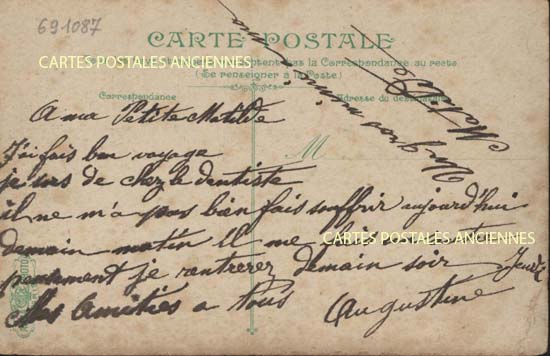 69-1087
CARTE POSTALE
CARTES POSTALES ANCIENNES
acceptent pas la Correspondance au recto
(Se renseigner à la Poste)
Correspondance
Adresse du destinataire
A ma Petite Matilde
J'ai fais bon voyage
je sors de chez le dentiste
il ne m'a pas bien fais souffrir aujourd'hui
demain matin il me
CARTES POSTALES ANCIENNES
pansement je rentrerez demain soir Jeudi
Mes Amitiés a tous
Augustine
M
Un gros mimi
Matilde